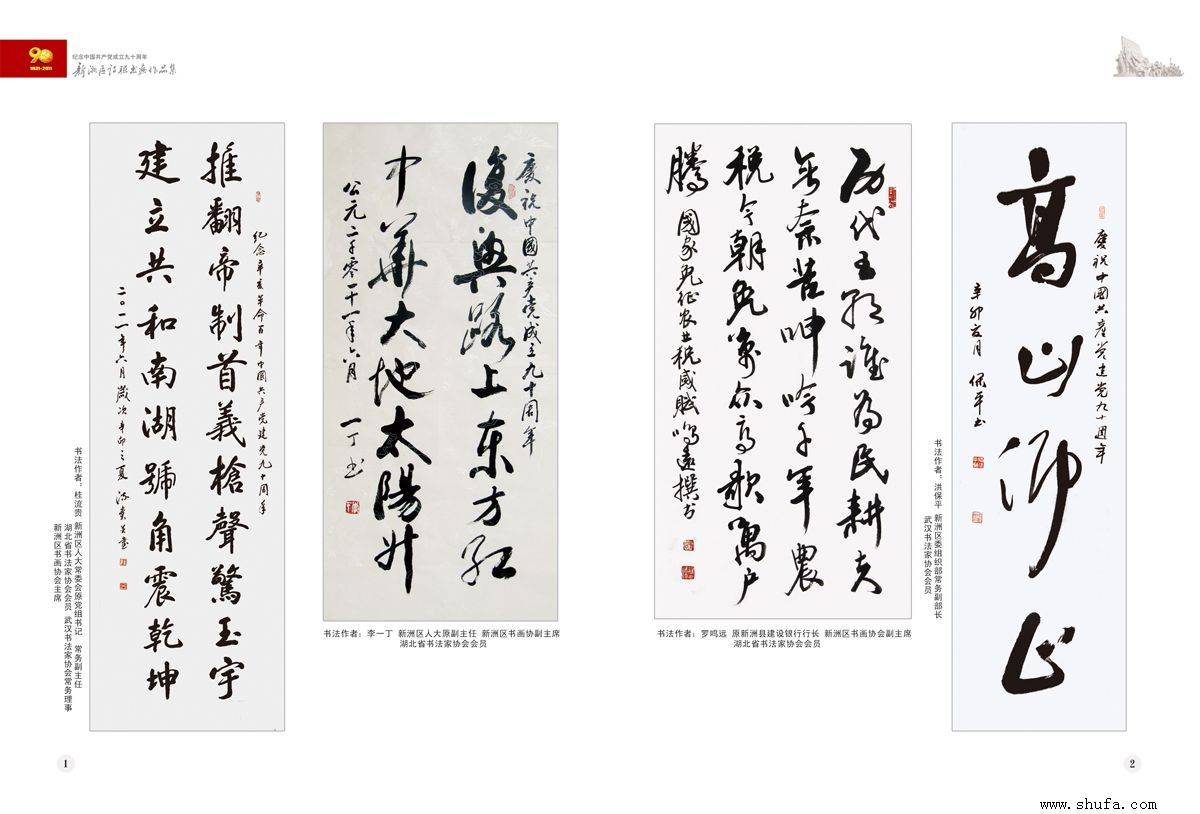 90
1921-2011
纪念中国共产党成立九十周年
推翻帝制首義槍聲驚玉宇
紀念辛亥革命百年中國共产党建党九十周年
建立共和南湖號角震乾坤
二〇一一年六月歲次辛卯之夏
书法作者：桂流贵 新洲区人大常委会原党组书记 常务副主任
湖北省书法家协会会员 武汉书法家协会常务理事
新洲区书画协会主席
慶祝中國共产党成立九十周年
復興路上东方红
中華大地太陽升
公元二千零一十一年六月
一丁书
书法作者：李一丁 新洲区人大原副主任 新洲区书画协副主席
湖北省书法家协会会员
历代王朝谁为民耕夫
无奈苦呻吟千年農
税今朝免万众高歌萬户
騰 國家免征农业税感赋鸣遠撰书
书法作者：罗鸣远 原新洲县建设银行行长 新洲区书画协会副主席
湖北省书法家协会会员
慶祝中國共產党建党九十週年
高山仰止
辛卯
保平书
书法作者：洪保平 新洲区委组织部常务副部长
武汉书法家协会会员
1
2
www.shufa.com